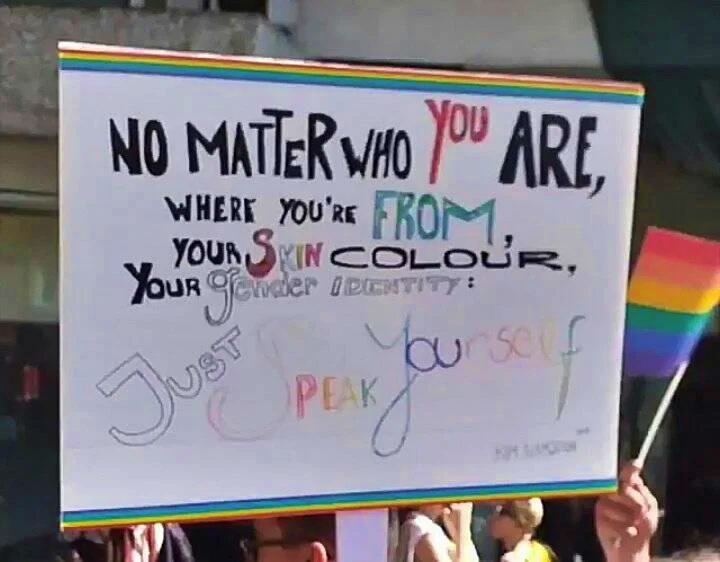 NO MATTER WHO YOU ARE,
WHERE YOU'RE FROM,
YOUR SKIN COLOUR,
YOUR gender IDENTITY:
JUST SPEAK Yourself